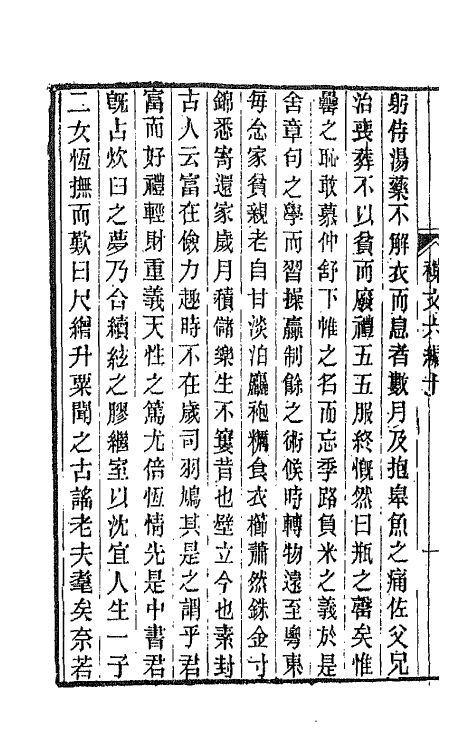 躬侍湯藥不解衣而息者數月及抱皋魚之痛佐父兄
治喪葬不以貧而廢禮五五服終慨然曰瓶之罄矣惟
罍之恥敢慕仲舒下帷之名而忘季路負米之義於是
舍章句之學而習操贏制餘之術候時轉物遠至粵東
每念家貧親老自甘淡泊麤袍糲食衣櫛蕭然銖金寸
錦悉寄還家歲月積儲樂生不窶昔也壁立今也素封
古人云富在儉力趣時不在歲司羽鳩其是之謂乎君
富而好禮輕財重義天性之篤尤倍恆情先是中書君
旣占炊臼之夢乃合續絃之膠繼室以沈宜人生一子
二女恆撫而歎曰尺繒升粟聞之古謠老夫耄矣奈若